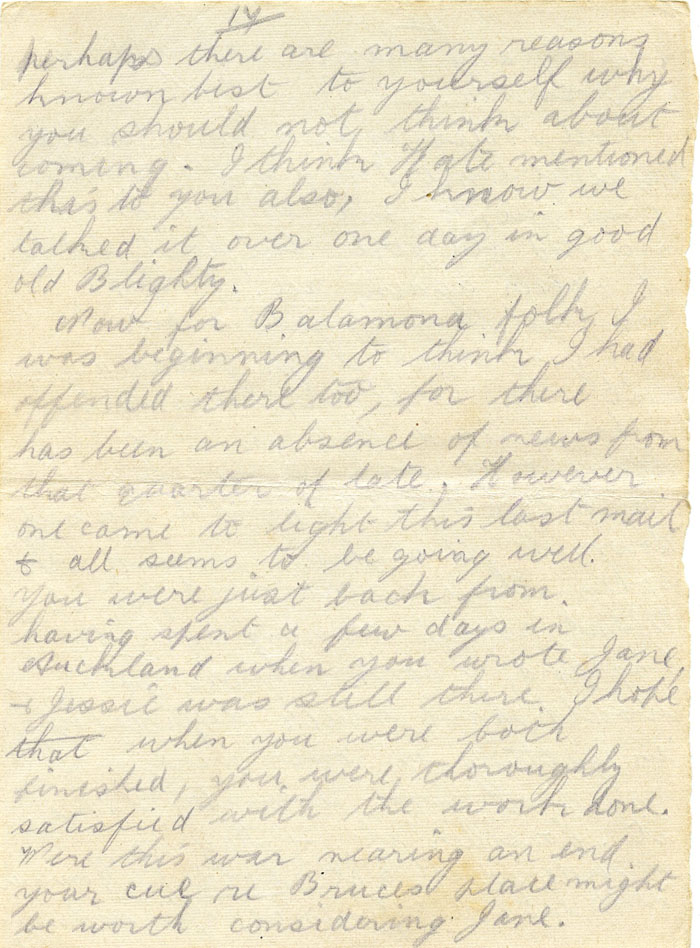 14
perhaps there are many reasons
known best to yourself why
you should not think about
coming. I think Kate mentioned
this to you also, I know we
talked it over one day in good
old Blighty.
Now for Balamona folk, I
was beginning to think I had
offended there too, for there
has been an absence of news from
that quarter of late. However
one came to light this last mail
& all seems to be going well.
You were just back from
having spent a few days in
Auckland when you wrote Jane,
& Jessie was still there. I hope
that when you were both
finished, you were thoroughly
satisfied with the work done.
Were this war nearing an end
your cue re Bruces place might
be worth considering Jane.